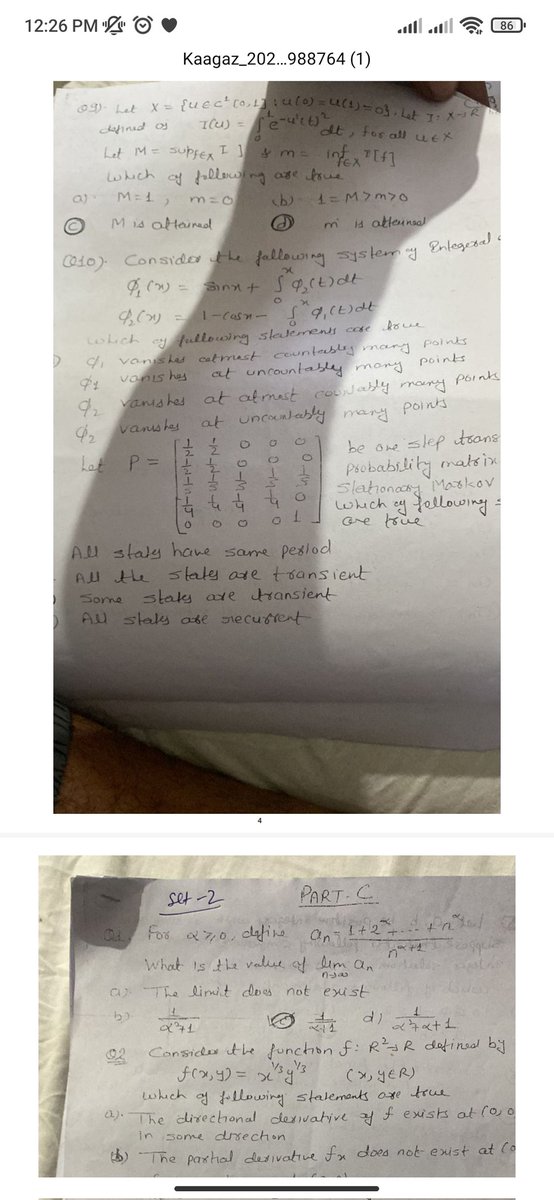 12:26 PM
86
Kaagaz_202...988764 (1)
Q9). Let X = {u ∈ C¹[0,1] : u(0) = u(1) = 0}. Let I: X→R
defined as I(u) = ∫₀¹ e^{-u'(t)²} dt, for all u ∈ X
Let M = sup_{f∈X} I[ ] & m = inf_{f∈X} I[f]
which of following are true
a) M=1, m=0 (b) 1=M>m>0
(c) M is attained (d) m is attained
Q10). Consider the following system of Integral
φ₁(x) = sinx + ∫₀ˣ φ₂(t)dt
φ₂(x) = 1-cosx - ∫₀ˣ φ₁(t)dt
which of following statements are true
φ₁ vanishes atmost countably many points
φ₁ vanishes at uncountably many points
φ₂ vanishes at atmost countably many points
φ₂ vanishes at uncountably many points
Let P = be one step trans
1/2 1/2 0 0 0
1/2 1/2 0 0 0 probability matrix
1/5 1/5 1/5 1/5 1/5 Stationary Markov
1/4 1/4 1/4 1/4 0 which of following
0 0 0 0 1 are true
All states have same period
All the states are transient
Some states are transient
All states are recurrent
4
set-2 PART-C
Q1. For α≥0, define aₙ = (1+2^α+...+n^α)/n^{α+1}
What is the value of lim_{n→∞} aₙ
a) The limit does not exist
b) 1/(α²+1) (c) 1/(α+1) d) 1/(α²+α+1)
Q2 Consider the function f: R²→R defined by
f(x,y) = x^{1/3}y^{1/3} (x,y∈R)
which of following statements are true
(a). The directional derivative of f exists at (0,0
in some direction
(b) The partial derivative fx does not exist at (0